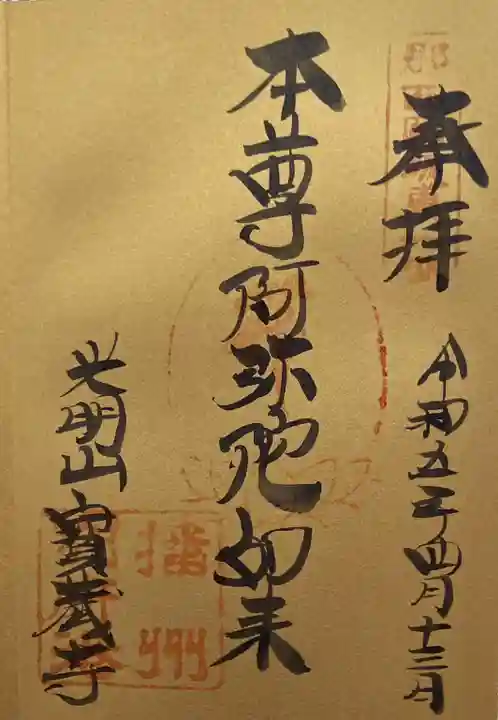 奉拝
令和五年四月十三日
本尊阿弥陀如来
光明山寶蔵寺
摂州